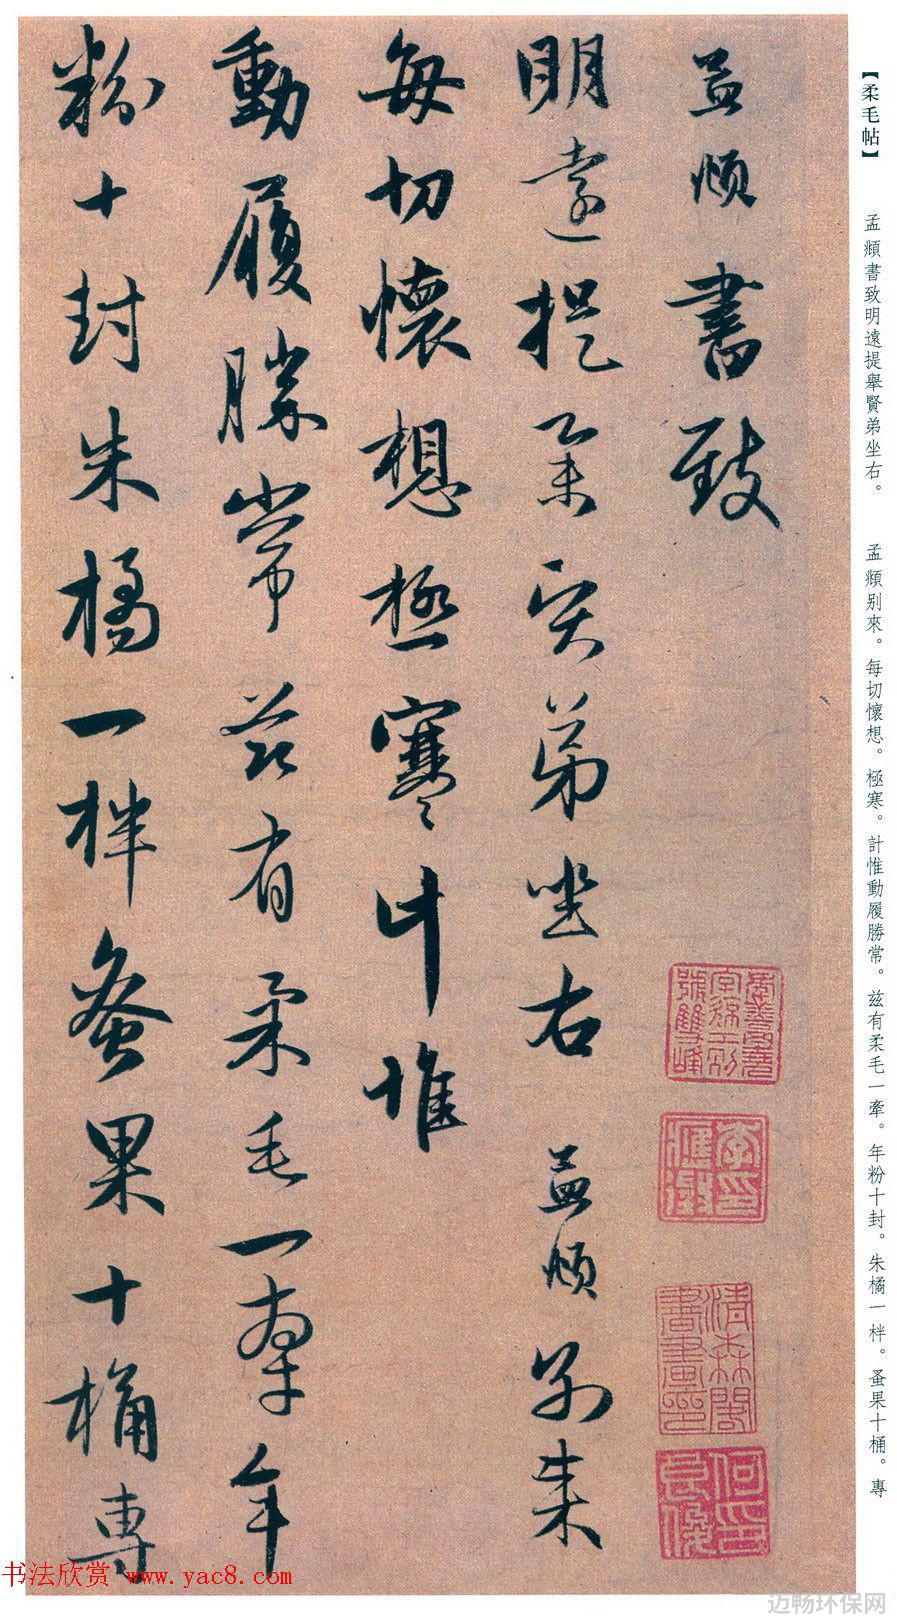 【柔毛帖】
孟頫書致明遠提舉賢弟坐右。
孟頫别來。每切懷想。極寒。計惟動履勝常。兹有柔毛一牽。年粉十封。朱橘一柈。蚤果十桶。專
孟頫書致
明遠提舉賢弟坐右 孟頫别來
每切懷想極寒計惟
動履勝常兹有柔毛一牽年
粉十封朱橘一柈蚤果十桶專
書法欣赏 www.yac8.com
迈畅环保网